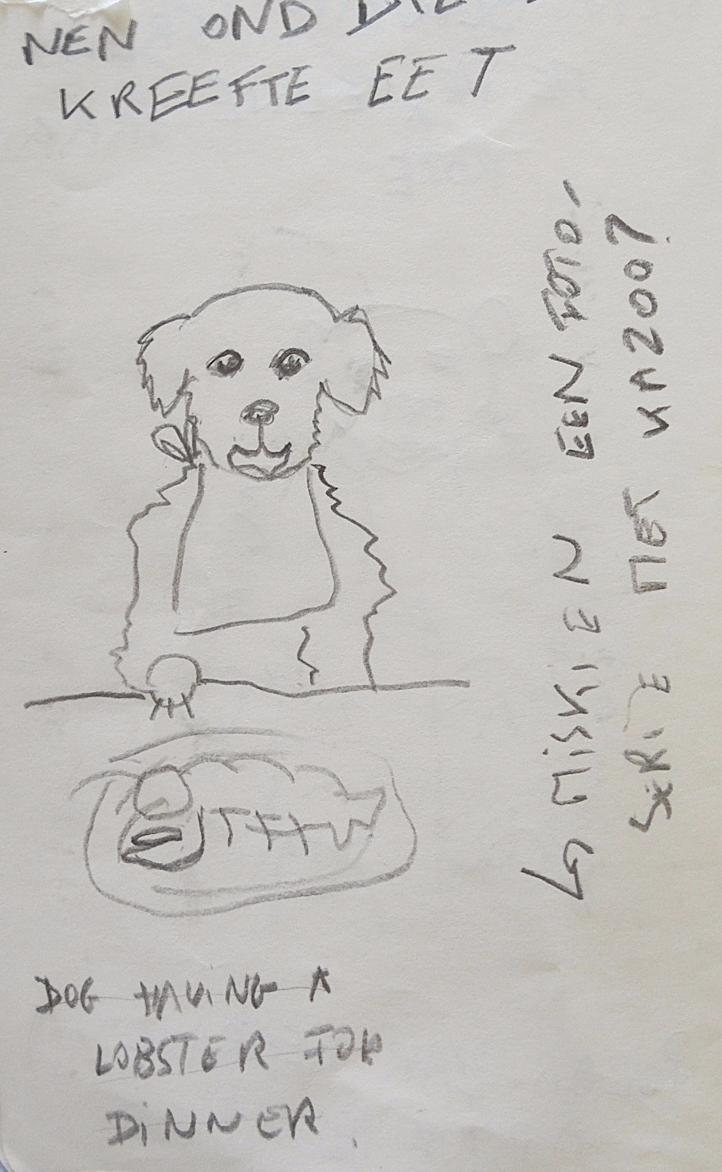 NEN OND DIE
KREEFTE EET
MISKIEN EEN FOTO-
SERIE MET KAZOO?
DOG HAVING A
LOBSTER FOR
DINNER.